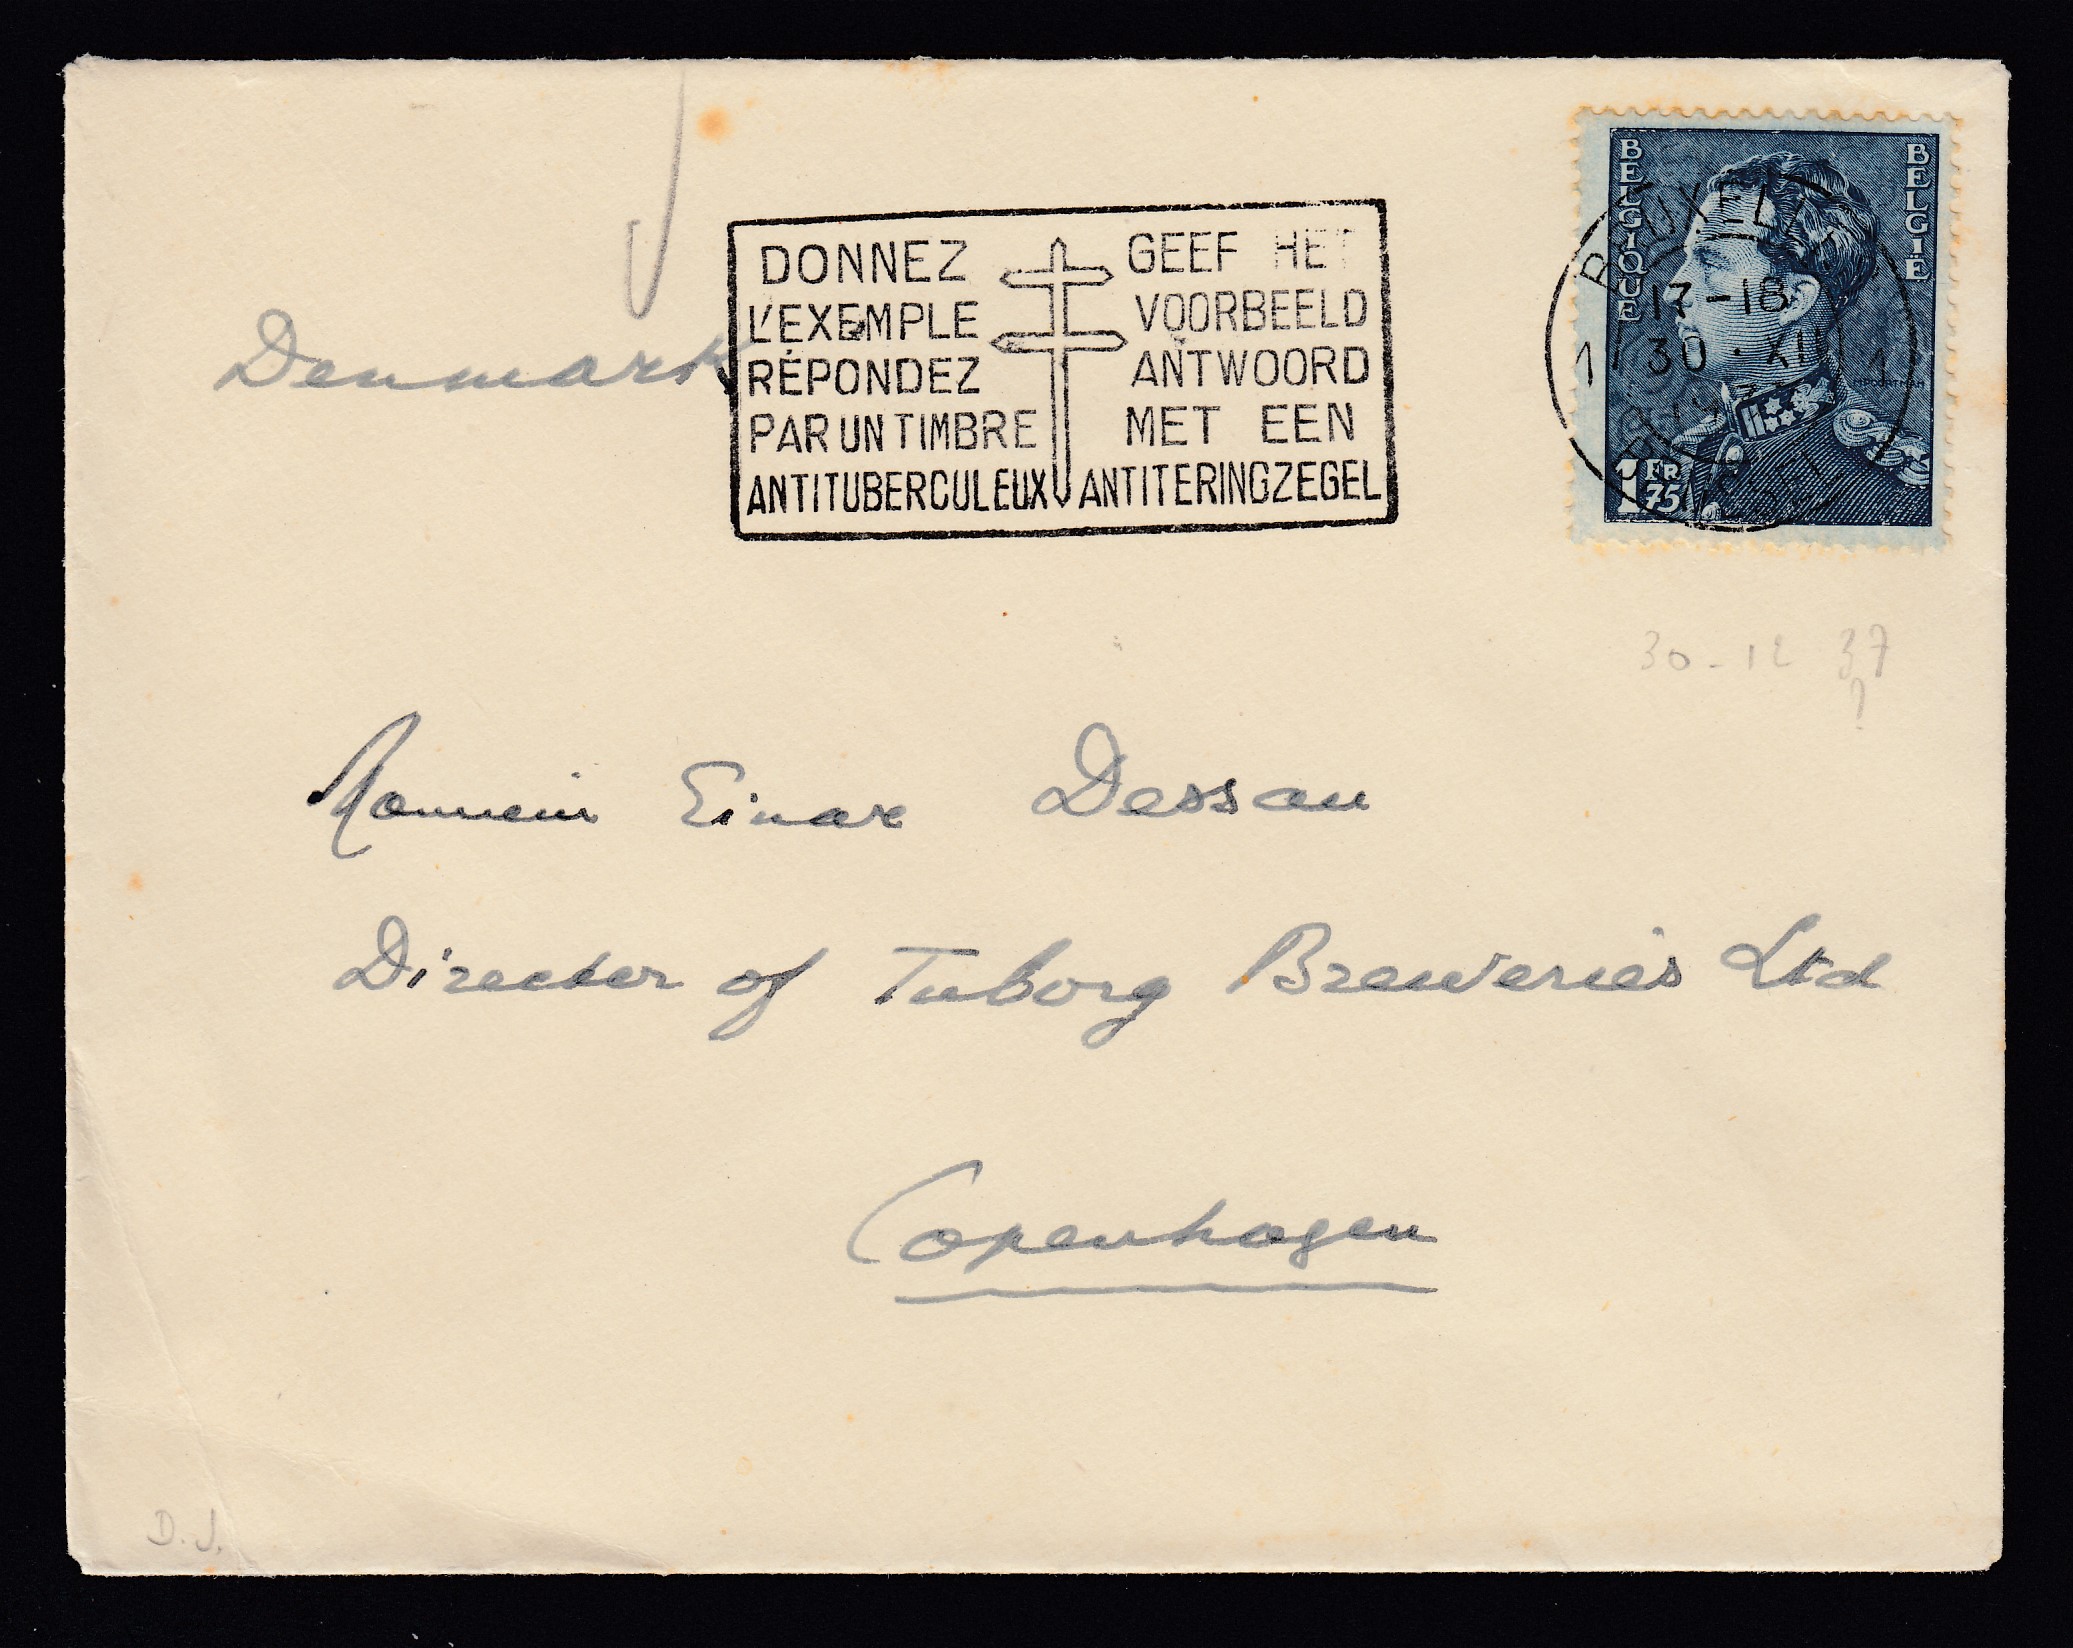 DONNEZ
L'EXEMPLE
RÉPONDEZ
PAR UN TIMBRE
ANTITUBERCULEUX
GEEF HET
VOORBEELD
ANTWOORD
MET EEN
ANTITERINGZEGEL
BELGIQUE
BELGIË
1 FR 75
BRUXELLES
1 17-18 1
30·XII
BRUSSEL
Denmark
30-12 37
?
Monsieur Einar Dessau
Director of Tuborg Breweries Ltd
Copenhagen
D.J.